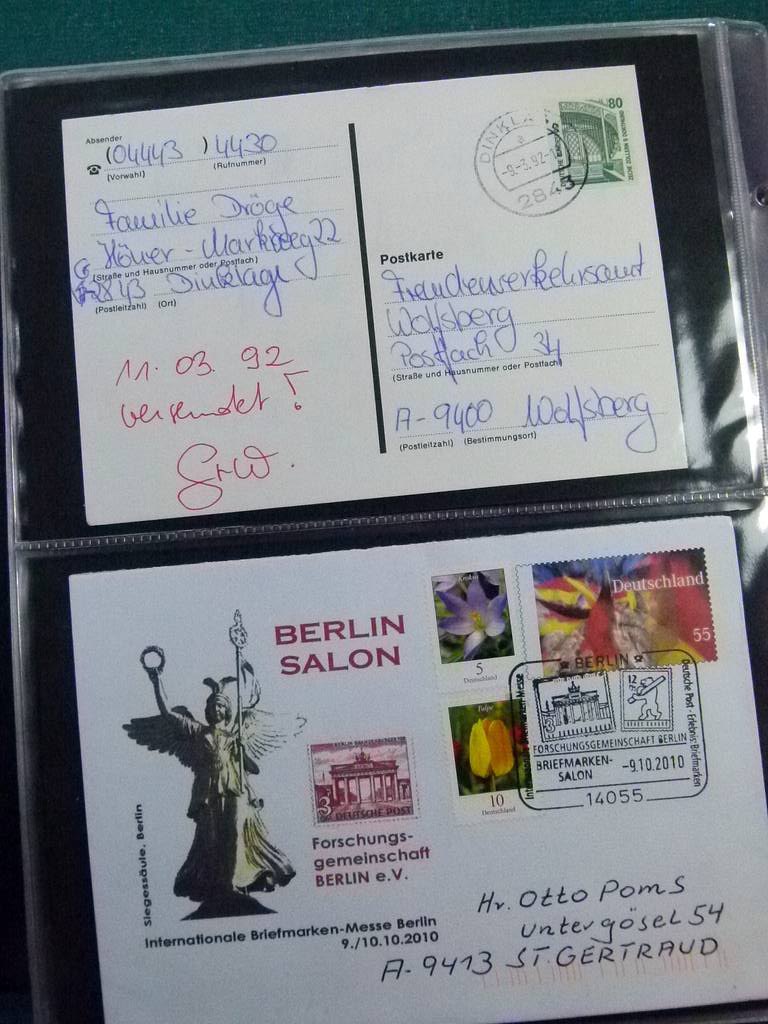 Absender
(04443 ) 4430
(Vorwahl) (Rufnummer)
Familie Dröge
Höner-Markweg 22
(Straße und Hausnummer oder Postfach)
2843 Dinklage
(Postleitzahl) (Ort)
11. 03. 92
versendet!
DINKLA
a
-9.-3.92-1
2843
80
ZECHE ZOLLERN II DORTMUND
Postkarte
Fremdenverkehrsamt
Wolfsberg
Postfach 34
(Straße und Hausnummer oder Postfach)
A-9400 Wolfsberg
(Postleitzahl) (Bestimmungsort)
BERLIN
SALON
Siegessäule, Berlin
BERLIN BRANDENBURGER TOR
3
DEUTSCHE POST
Forschungs-
gemeinschaft
BERLIN e.V.
Internationale Briefmarken-Messe Berlin
9./10.10.2010
Krokus
5
Deutschland
Tulpe
10
Deutschland
Deutschland
55
BERLIN
Deutsche Post · Erlebnis: Briefmarken
3
12
FORSCHUNGSGEMEINSCHAFT BERLIN
BRIEFMARKEN-
SALON
-9.10.2010
14055
Hr. Otto Poms
Untergösel 54
A-9413 ST. GERTRAUD